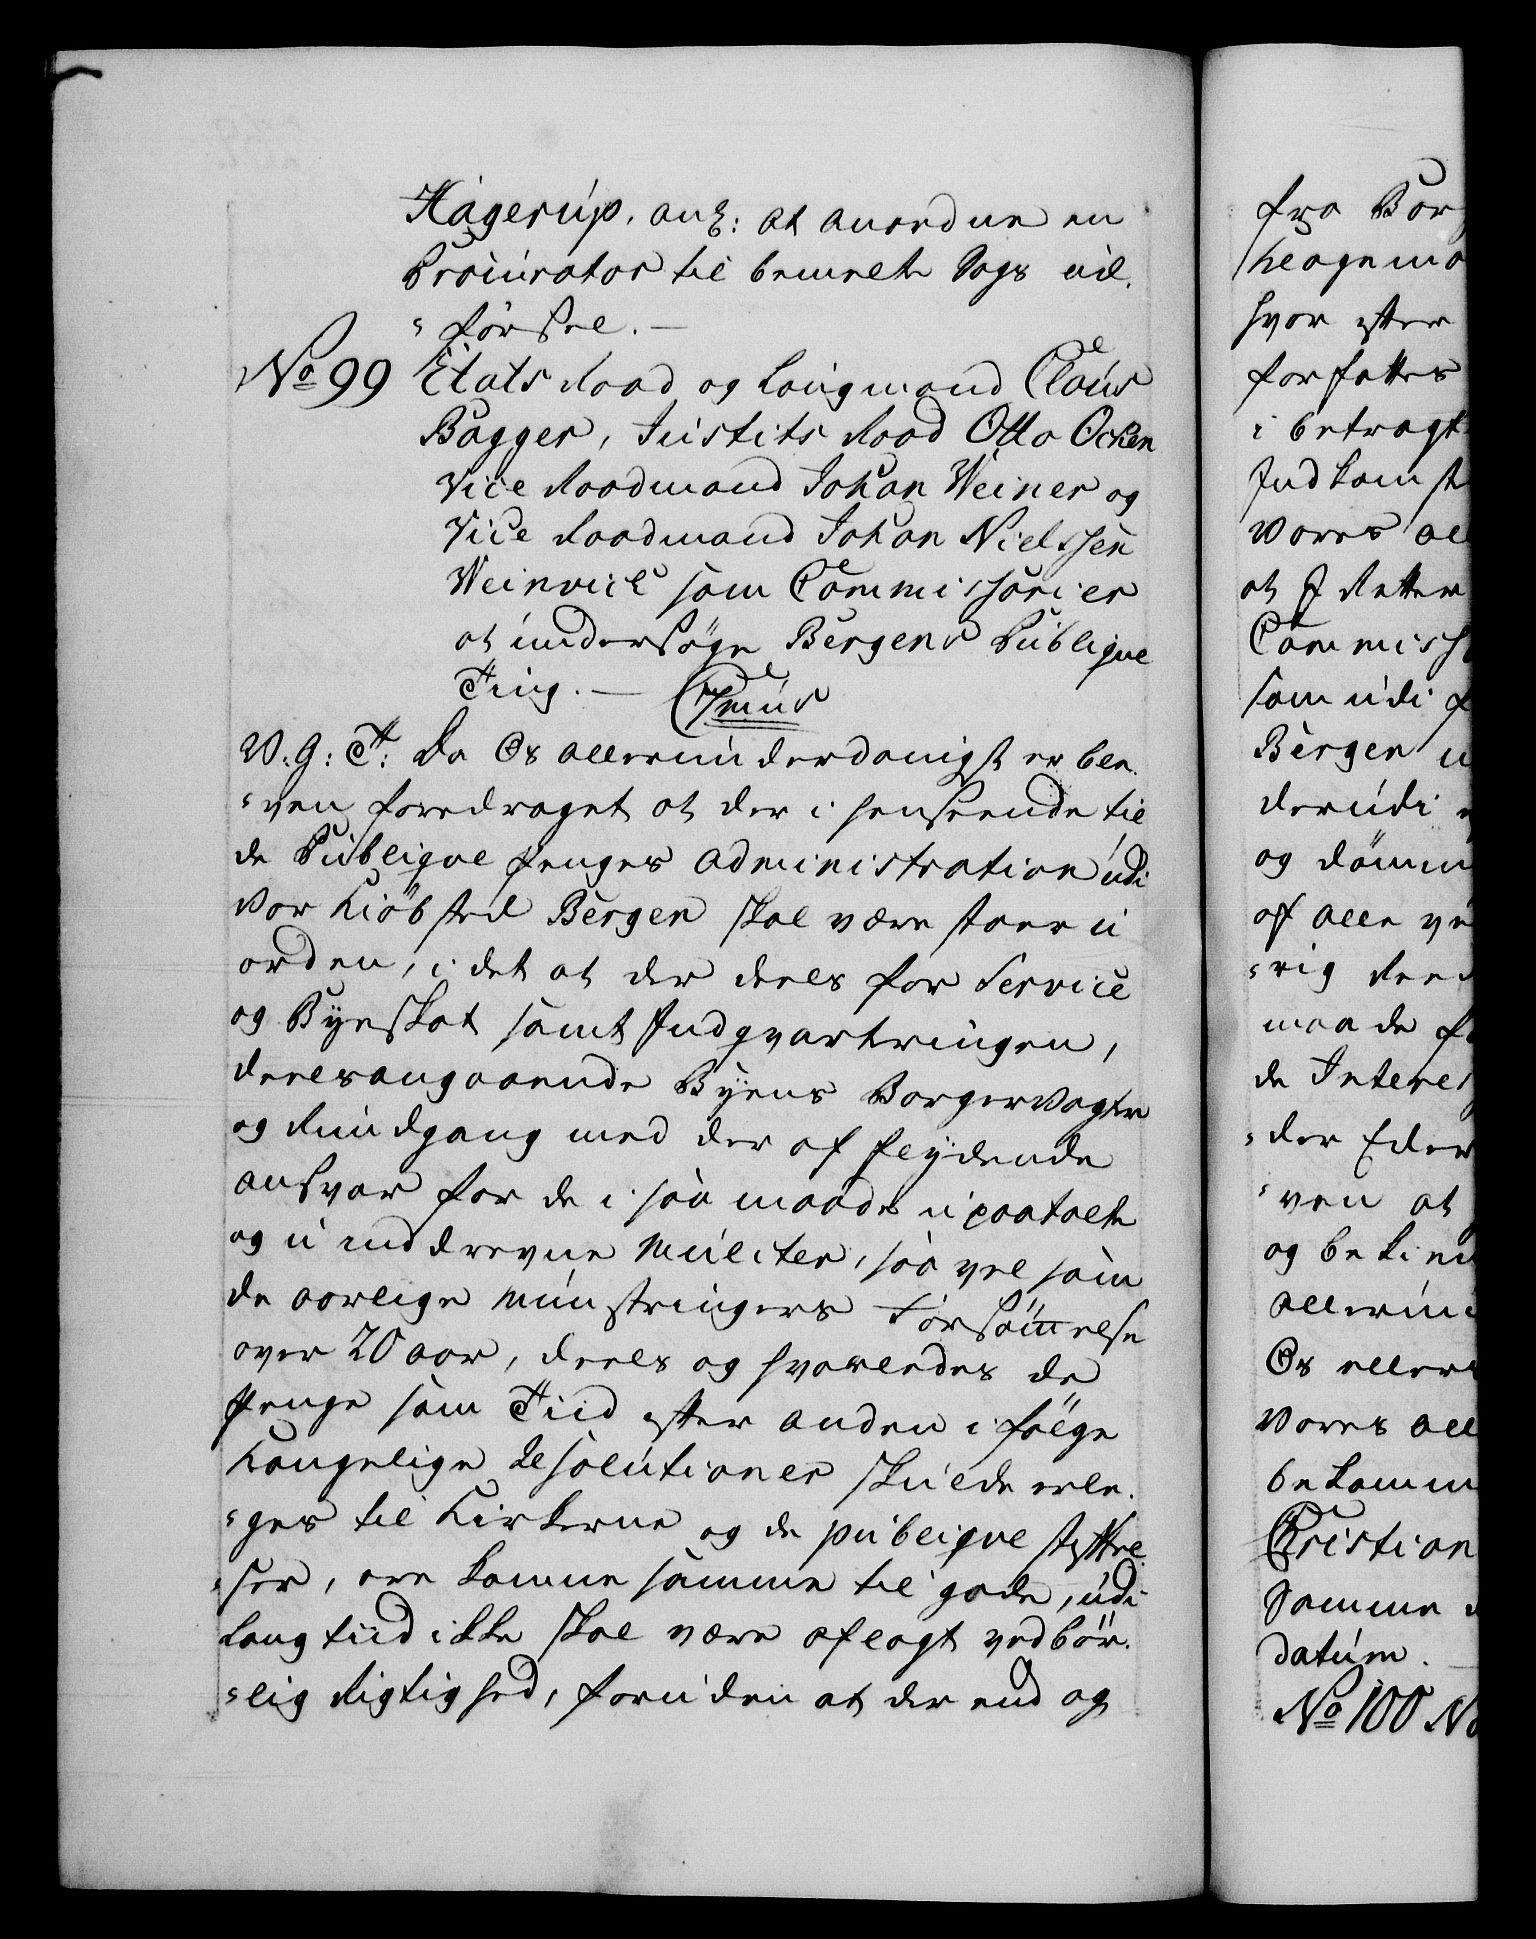 Hagerup, ang: at anordne en
Procurator til bemelte Sags ud-
"försel. —
No 99 Etats Raad og Laugmand Claus
Bagger, Justits Raad Otto Ocken
Vice Raadmand Johan Weiner og
Vice Raadmand Johan Nielssen
Weinvich som Commissarier
at undersöge Bergens Publique
Ting. —
V. G: T: Da Os allerunderdanigst er ble-
"ven foredraget at der i henseende til
de Publique Penges Administration udi
vor Kiöbsted Bergen skal være stoer u
orden, i det at der deels for Service
og Byeskat samt Indqvarteringen,
deels angaaende Byens Borgervagter
og Rundgang med der af flydende
ansvar for de i saa maade upaatalte
og u inddrevne Mulcter, saa vel som
de aarlige Mùnstringers Forsömmelse
over 20 aar, deels og hvorledes de
Penge som Tiid efter anden i fölge
Kongelige Resolutioner skulde erle-
"ges til Kirkerne og de publique stiftel-
"ser, ere komne samme til gode, udi
lang tiid ikke skal være aflagt vedbör-
"lig Rigtighed, foruden at der end og
fra Bor
Klagemo
hvor efter
forfattes
i betragt
Indkomst
Vores all
at I Retter
Commiss
som udi f
Bergen u
derudi
og dömm
af alle ve
"rig
maade f
de Interes
"der Eder
"ven at
og bekien
allerun
Os aller
Vores all
bekomm
Christian
Samme
datum. —
No 100 No